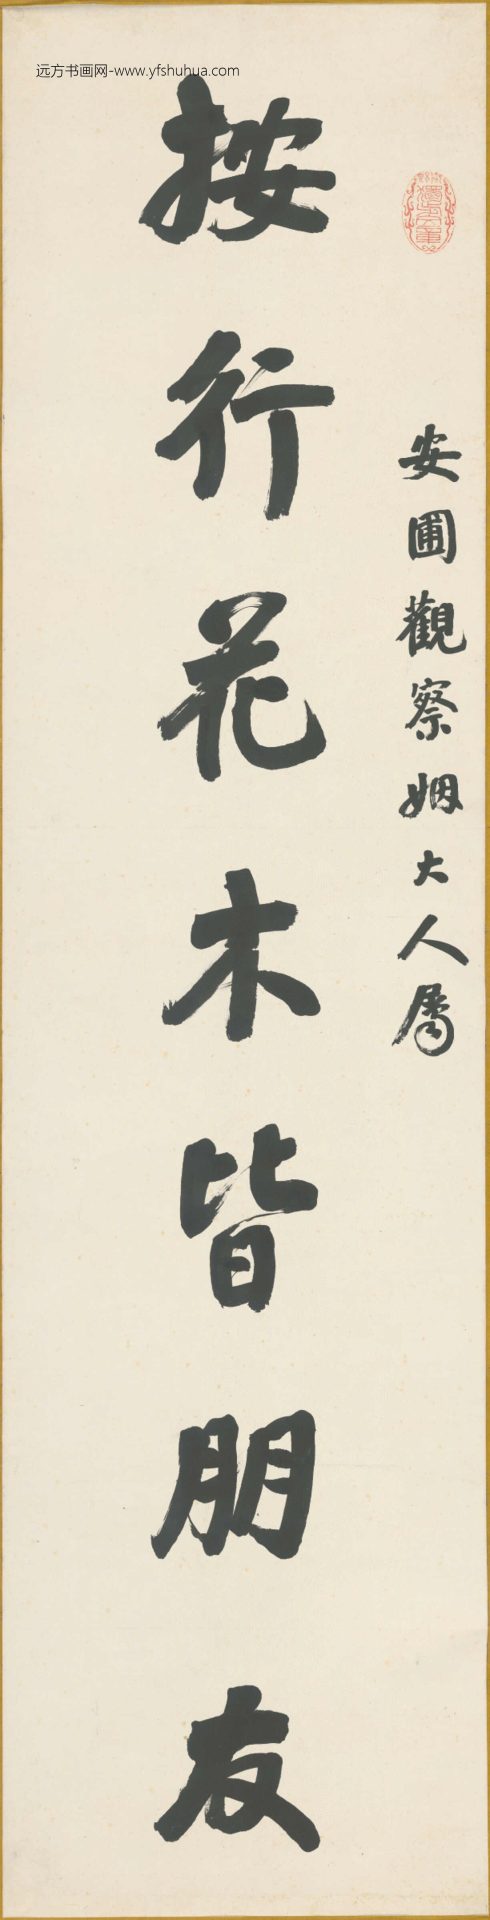 远方书画网-www.yfshuhua.com
按行花木皆朋友
安圃觀察姻大人屬